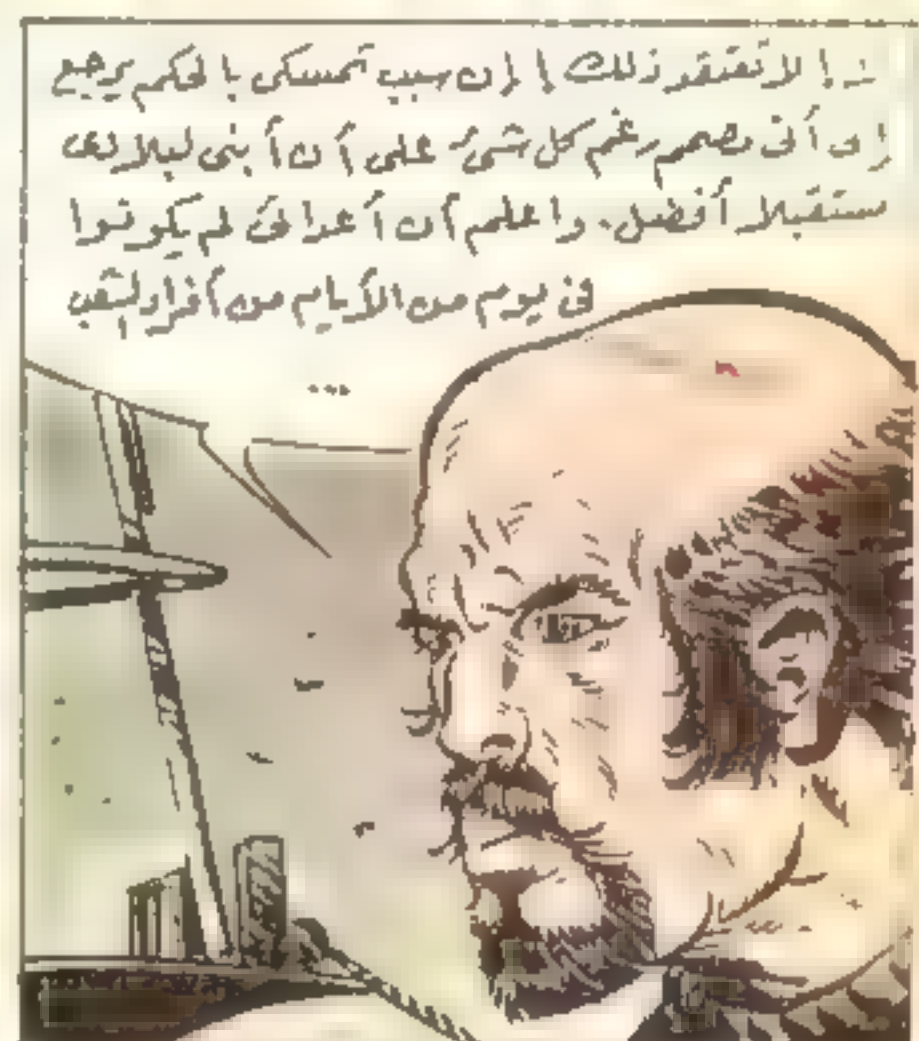 لا تعتقد ذلك ! إن سبب تمسكى بالحكم يرجع
إلى أنى مصمم رغم كل شئ على أن أبنى لبلادى
مستقبلا أفضل. واعلم أن أعدائى لم يكونوا
فى يوم من الأيام من أفراد الشعب
...